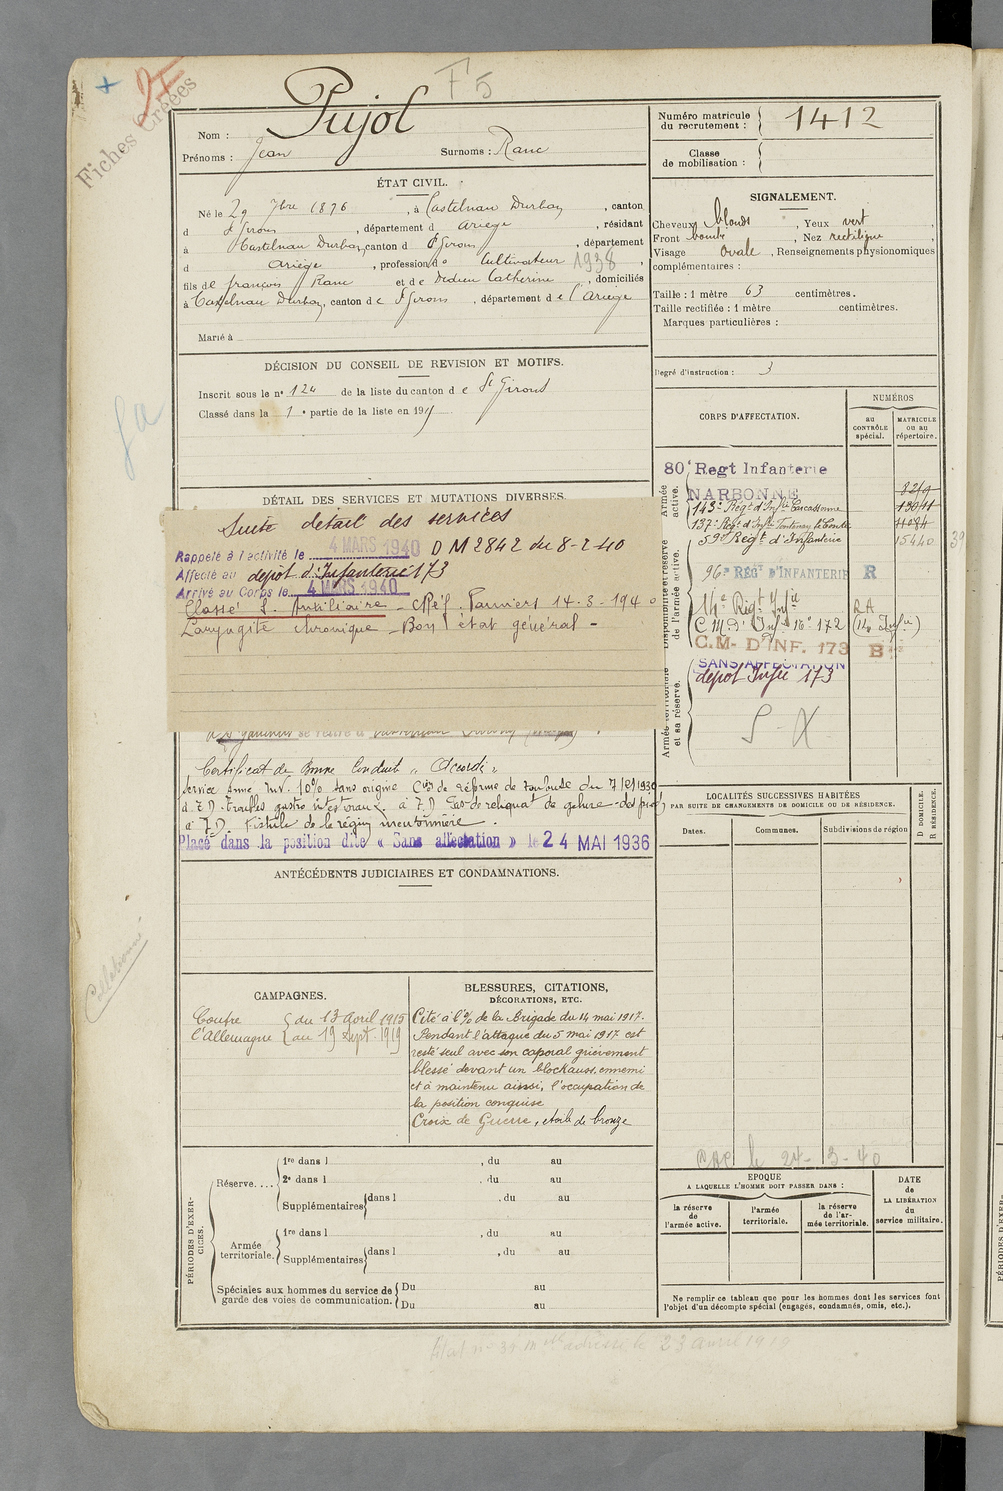 +
F 5
Fiches Créées
Nom : Pujol
Prénoms : Jean Surnoms : Ranc
Numéro matricule du recrutement : 1412
Classe de mobilisation :
ÉTAT CIVIL.
Né le 29 7bre 1896, à Castelnau Durban, canton
d St Girons, département d Ariège, résidant
à Castelnau Durban, canton d St Girons, département
d Ariège, profession de Cultivateur 1938
fils de françois Ranc et de Dedieu Catherine, domiciliés
à Castelnau Durban, canton de St Girons, département de l'Ariège
Marié à
SIGNALEMENT.
Cheveux blonds, Yeux vert
Front bombé, Nez rectiligne,
Visage Ovale, Renseignements physionomiques
complémentaires :
Taille : 1 mètre 63 centimètres.
Taille rectifiée : 1 mètre centimètres.
Marques particulières :
Degré d'instruction : 3
DÉCISION DU CONSEIL DE REVISION ET MOTIFS.
Inscrit sous le no 124 de la liste du canton de St Girons
Classé dans la 1e partie de la liste en 191
DÉTAIL DES SERVICES ET MUTATIONS DIVERSES.
Suite détail des services
Rappelé à l'activité le 4 MARS 1940 D M 2842 du 8-2-40
Affecté au dépot d'Infanterie 173
Arrivé au Corps le 4 MARS 1940
Classé S. Auxiliaire - CRéf. Pamiers 14-3-1940
Laryngite chronique - Bon état général -
se retire à
Certificat de Bonne Conduite "Accordé"
Service Armé Inv. 10% sans origine Cion de réforme de Toulouse du
à 7.D. Fistule de la région mentonnière.
Placé dans la position dite « Sans affectation » le 24 MAI 1936
CORPS D'AFFECTATION.
NUMÉROS
au CONTRÔLE spécial.
MATRICULE OU AU répertoire.
Armée active.
Disponibilité et réserve de l'armée active.
Armée territoriale et sa réserve.
80e Regt Infanterie
NARBONNE 8219
143e Régt d'Infie Carcassonne
137e Régt d'Infie Fontenay le Comte
59e Régt d'Infanterie 15440
96e REGt D'INFANTERIE R
14e Régt Infie RA
C M D'Inf no 172 (14 Infie)
C.M- D'INF. 173 B
SANS AFFECTATION
dépot Infie 173
S - X
LOCALITÉS SUCCESSIVES HABITÉES
PAR SUITE DE CHANGEMENTS DE DOMICILE OU DE RÉSIDENCE.
Dates. Communes. Subdivisions de région
D DOMICILE. R RÉSIDENCE.
ANTÉCÉDENTS JUDICIAIRES ET CONDAMNATIONS.
CAMPAGNES.
Contre du 13 avril 1915
l'Allemagne au 19 Sept. 1919
BLESSURES, CITATIONS,
DÉCORATIONS, ETC.
Cité à l'O/ de la Brigade du 14 mai 1917.
Pendant l'attaque du 5 mai 1917 est
resté seul avec son caporal grièvement
blessé devant un blockauss ennemi
et à maintenu ainsi, l'occupation de
la position conquise
Croix de Guerre, étoile de bronze
le 24-3-40
PÉRIODES D'EXERCICES.
Réserve....
1re dans l , du au
2e dans l , du au
Supplémentaires dans l , du au
Armée territoriale.
1re dans l , du au
Supplémentaires dans l , du au
Spéciales aux hommes du service de garde des voies de communication.
Du au
Du au
EPOQUE
A LAQUELLE L'HOMME DOIT PASSER DANS :
la réserve de l'armée active.
l'armée territoriale.
la réserve de l'armée territoriale.
DATE de LA LIBÉRATION du service militaire.
Ne remplir ce tableau que pour les hommes dont les services font
l'objet d'un décompte spécial (engagés, condamnés, omis, etc.).
le 23 avril 1919